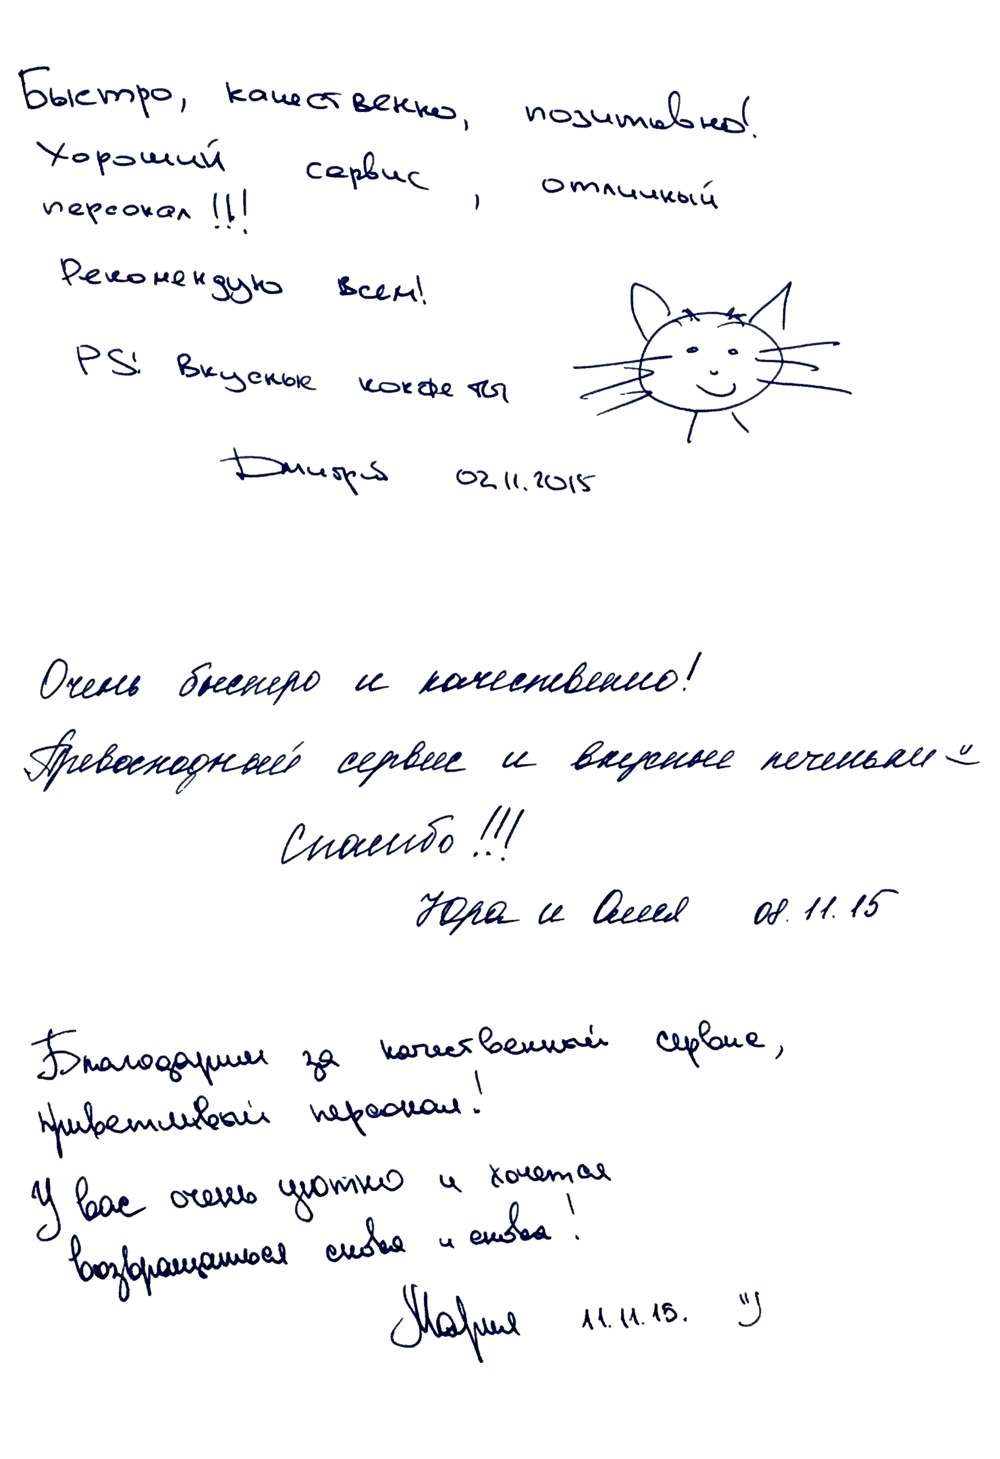 Быстро, качественно, позитивно!
Хороший сервис, отличный
персонал!!!
Рекомендую всем!
PS: Вкусные конфеты
Дмитрий 02.11.2015
Очень быстро и качественно!
Превосходный сервис и вкусные печеньки
Спасибо!!!
Юра и Оля 08.11.15
Благодарим за качественный сервис,
приветливый персонал!
У вас очень уютно и хочется
возвращаться снова и снова!
Мария 11.11.15. :)